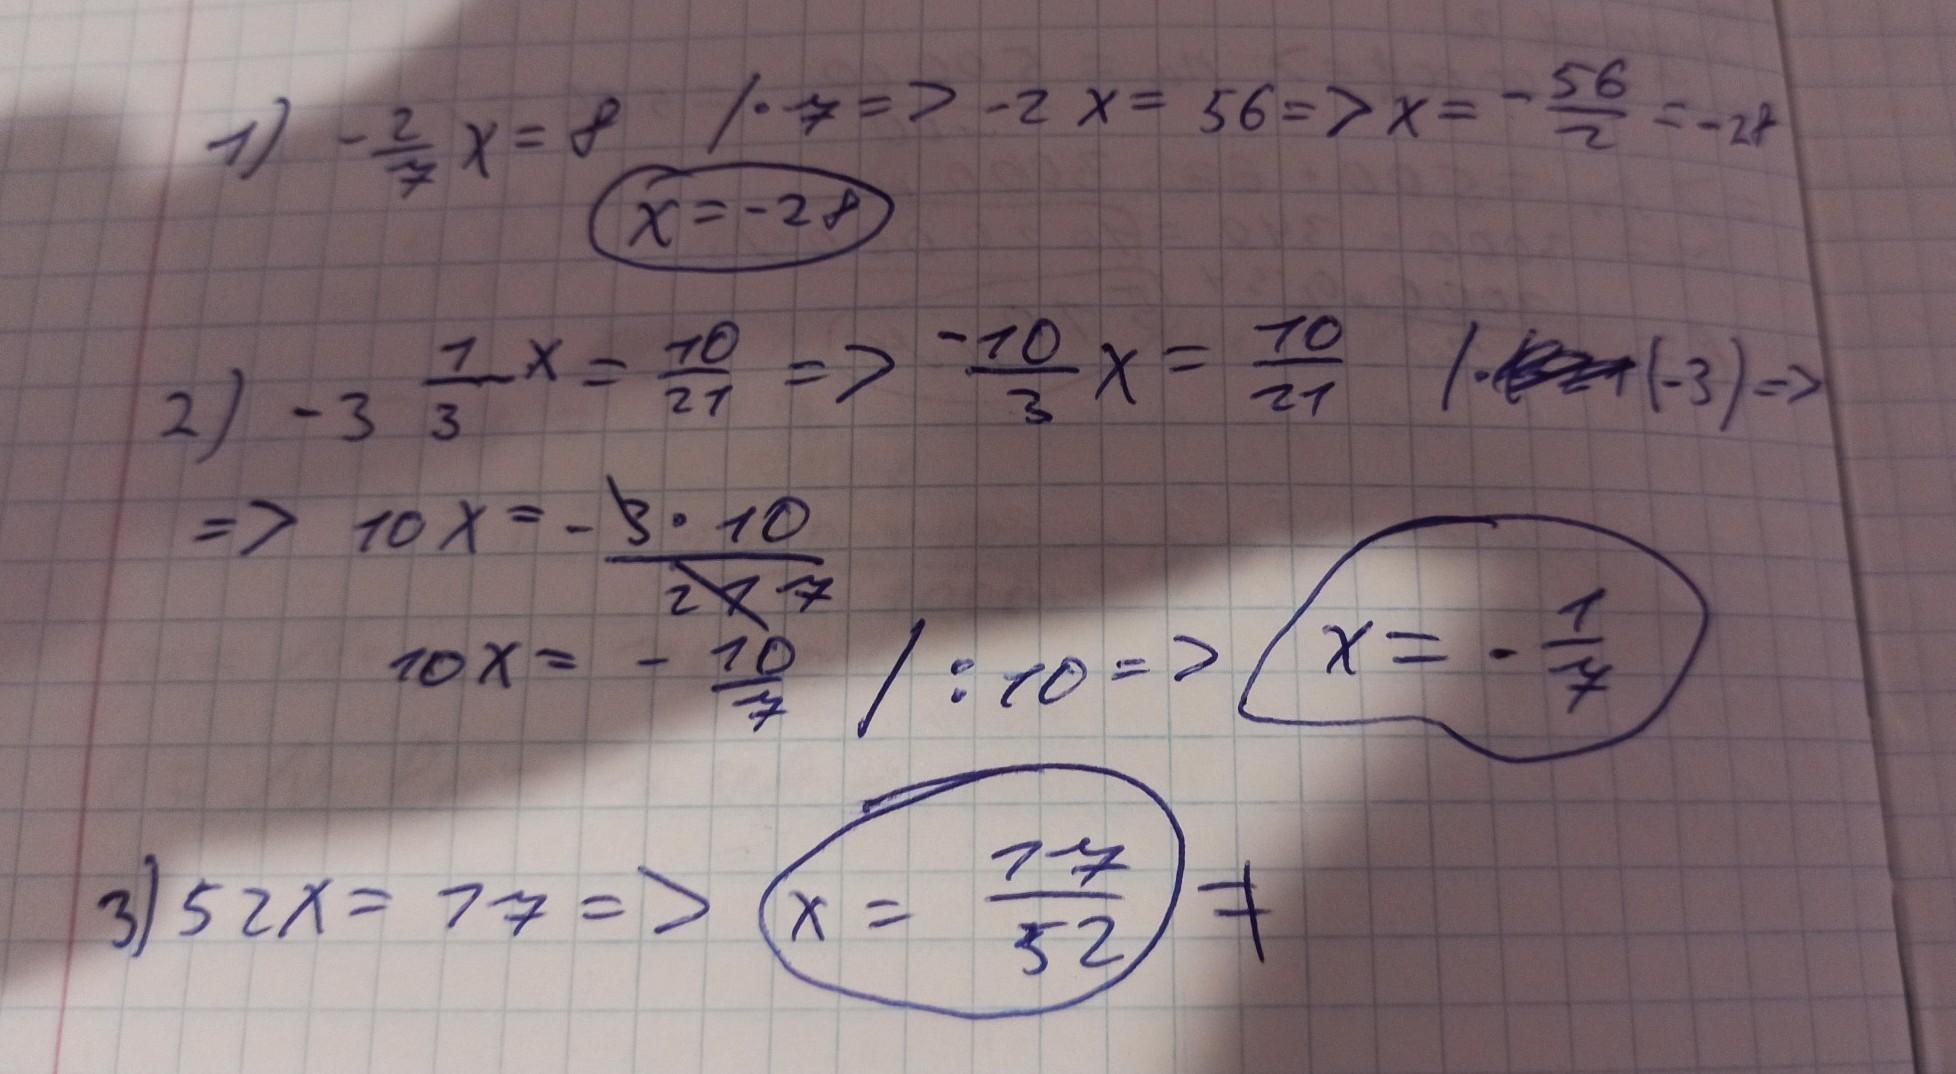 1) -2/7 x = 8 /·7 => -2x = 56 => x = -56/2 = -28
x = -28
2) -3 1/3 x = 10/21 => -10/3 x = 10/21 /· (-3) =>
=> 10x = -3·10/21 7
10x = -10/7 / : 10 => x = -1/7
3) 52x = 17 => x = 17/52